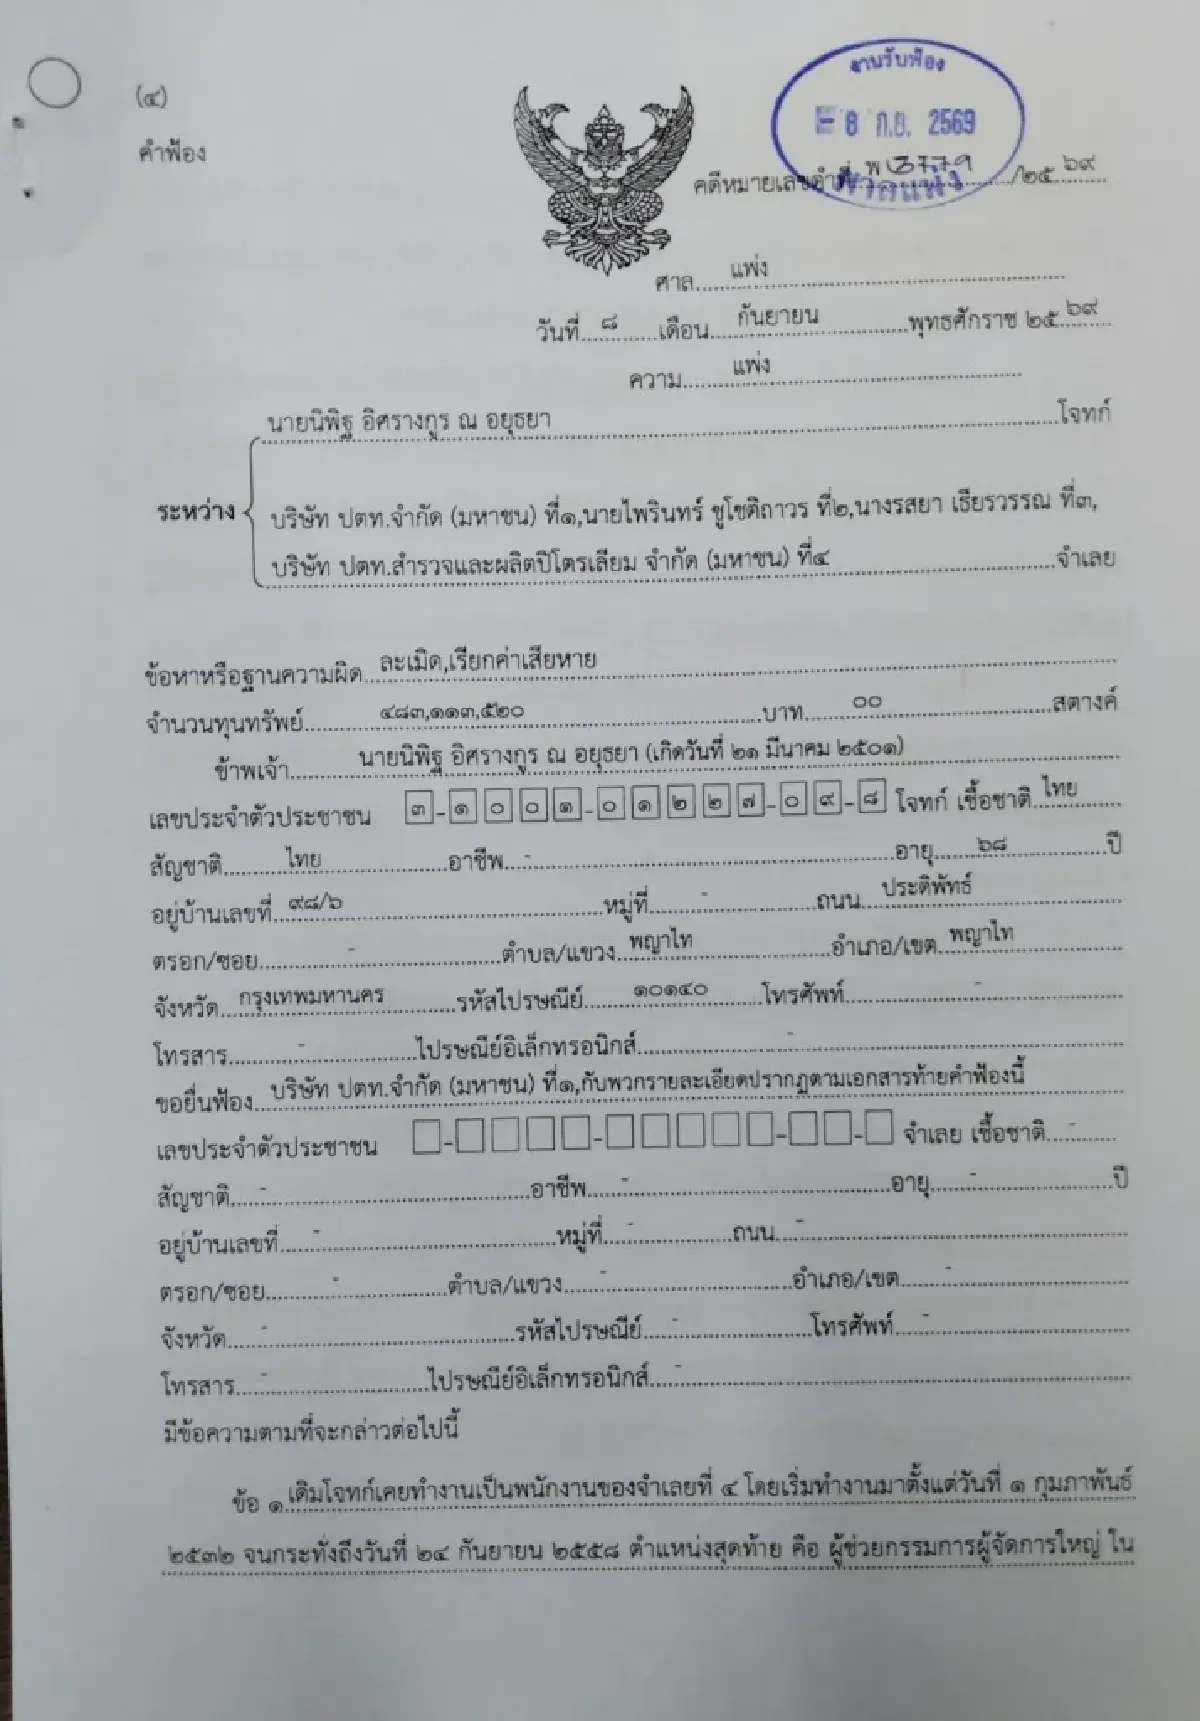 (๔)
คำฟ้อง
งานรับฟ้อง
- 8 ก.ย. 2569
ศาลแพ่ง
คดีหมายเลขดำที่ พ 3779 /๒๕๖๙
ศาล แพ่ง
วันที่ ๘ เดือน กันยายน พุทธศักราช ๒๕๖๙
ความ แพ่ง
นายนิพิฐ อิศรางกูร ณ อยุธยา โจทก์
ระหว่าง
บริษัท ปตท.จำกัด (มหาชน) ที่๑,นายไพรินทร์ ชูโชติถาวร ที่๒,นางรสยา เธียรวรรณ ที่๓,
บริษัท ปตท.สำรวจและผลิตปิโตรเลียม จำกัด (มหาชน) ที่๔ จำเลย
ข้อหาหรือฐานความผิด ละเมิด,เรียกค่าเสียหาย
จำนวนทุนทรัพย์ ๔๘๓,๑๑๓,๕๒๐ บาท ๐๐ สตางค์
ข้าพเจ้า นายนิพิฐ อิศรางกูร ณ อยุธยา (เกิดวันที่ ๒๑ มีนาคม ๒๕๐๑)
เลขประจำตัวประชาชน ๓-๑๐๐๑-๐๑๒๒๗-๐๙-๘ โจทก์ เชื้อชาติ ไทย
สัญชาติ ไทย อาชีพ - อายุ ๖๘ ปี
อยู่บ้านเลขที่ ๙๘/๖ หมู่ที่ - ถนน ประดิพัทธ์
ตรอก/ซอย - ตำบล/แขวง พญาไท อำเภอ/เขต พญาไท
จังหวัด กรุงเทพมหานคร รหัสไปรษณีย์ ๑๐๑๔๐ โทรศัพท์ -
โทรสาร - ไปรษณีย์อิเล็กทรอนิกส์ -
ขอยื่นฟ้อง บริษัท ปตท.จำกัด (มหาชน) ที่๑,กับพวกรายละเอียดปรากฏตามเอกสารท้ายคำฟ้องนี้
เลขประจำตัวประชาชน - - - - จำเลย เชื้อชาติ -
สัญชาติ - อาชีพ - อายุ - ปี
อยู่บ้านเลขที่ - หมู่ที่ - ถนน -
ตรอก/ซอย - ตำบล/แขวง - อำเภอ/เขต -
จังหวัด - รหัสไปรษณีย์ - โทรศัพท์ -
โทรสาร - ไปรษณีย์อิเล็กทรอนิกส์ -
มีข้อความตามที่จะกล่าวต่อไปนี้
ข้อ ๑ เดิมโจทก์เคยทำงานเป็นพนักงานของจำเลยที่ ๔ โดยเริ่มทำงานมาตั้งแต่วันที่ ๑ กุมภาพันธ์
๒๕๓๒ จนกระทั่งถึงวันที่ ๒๔ กันยายน ๒๕๕๘ ตำแหน่งสุดท้าย คือ ผู้ช่วยกรรมการผู้จัดการใหญ่ ใน